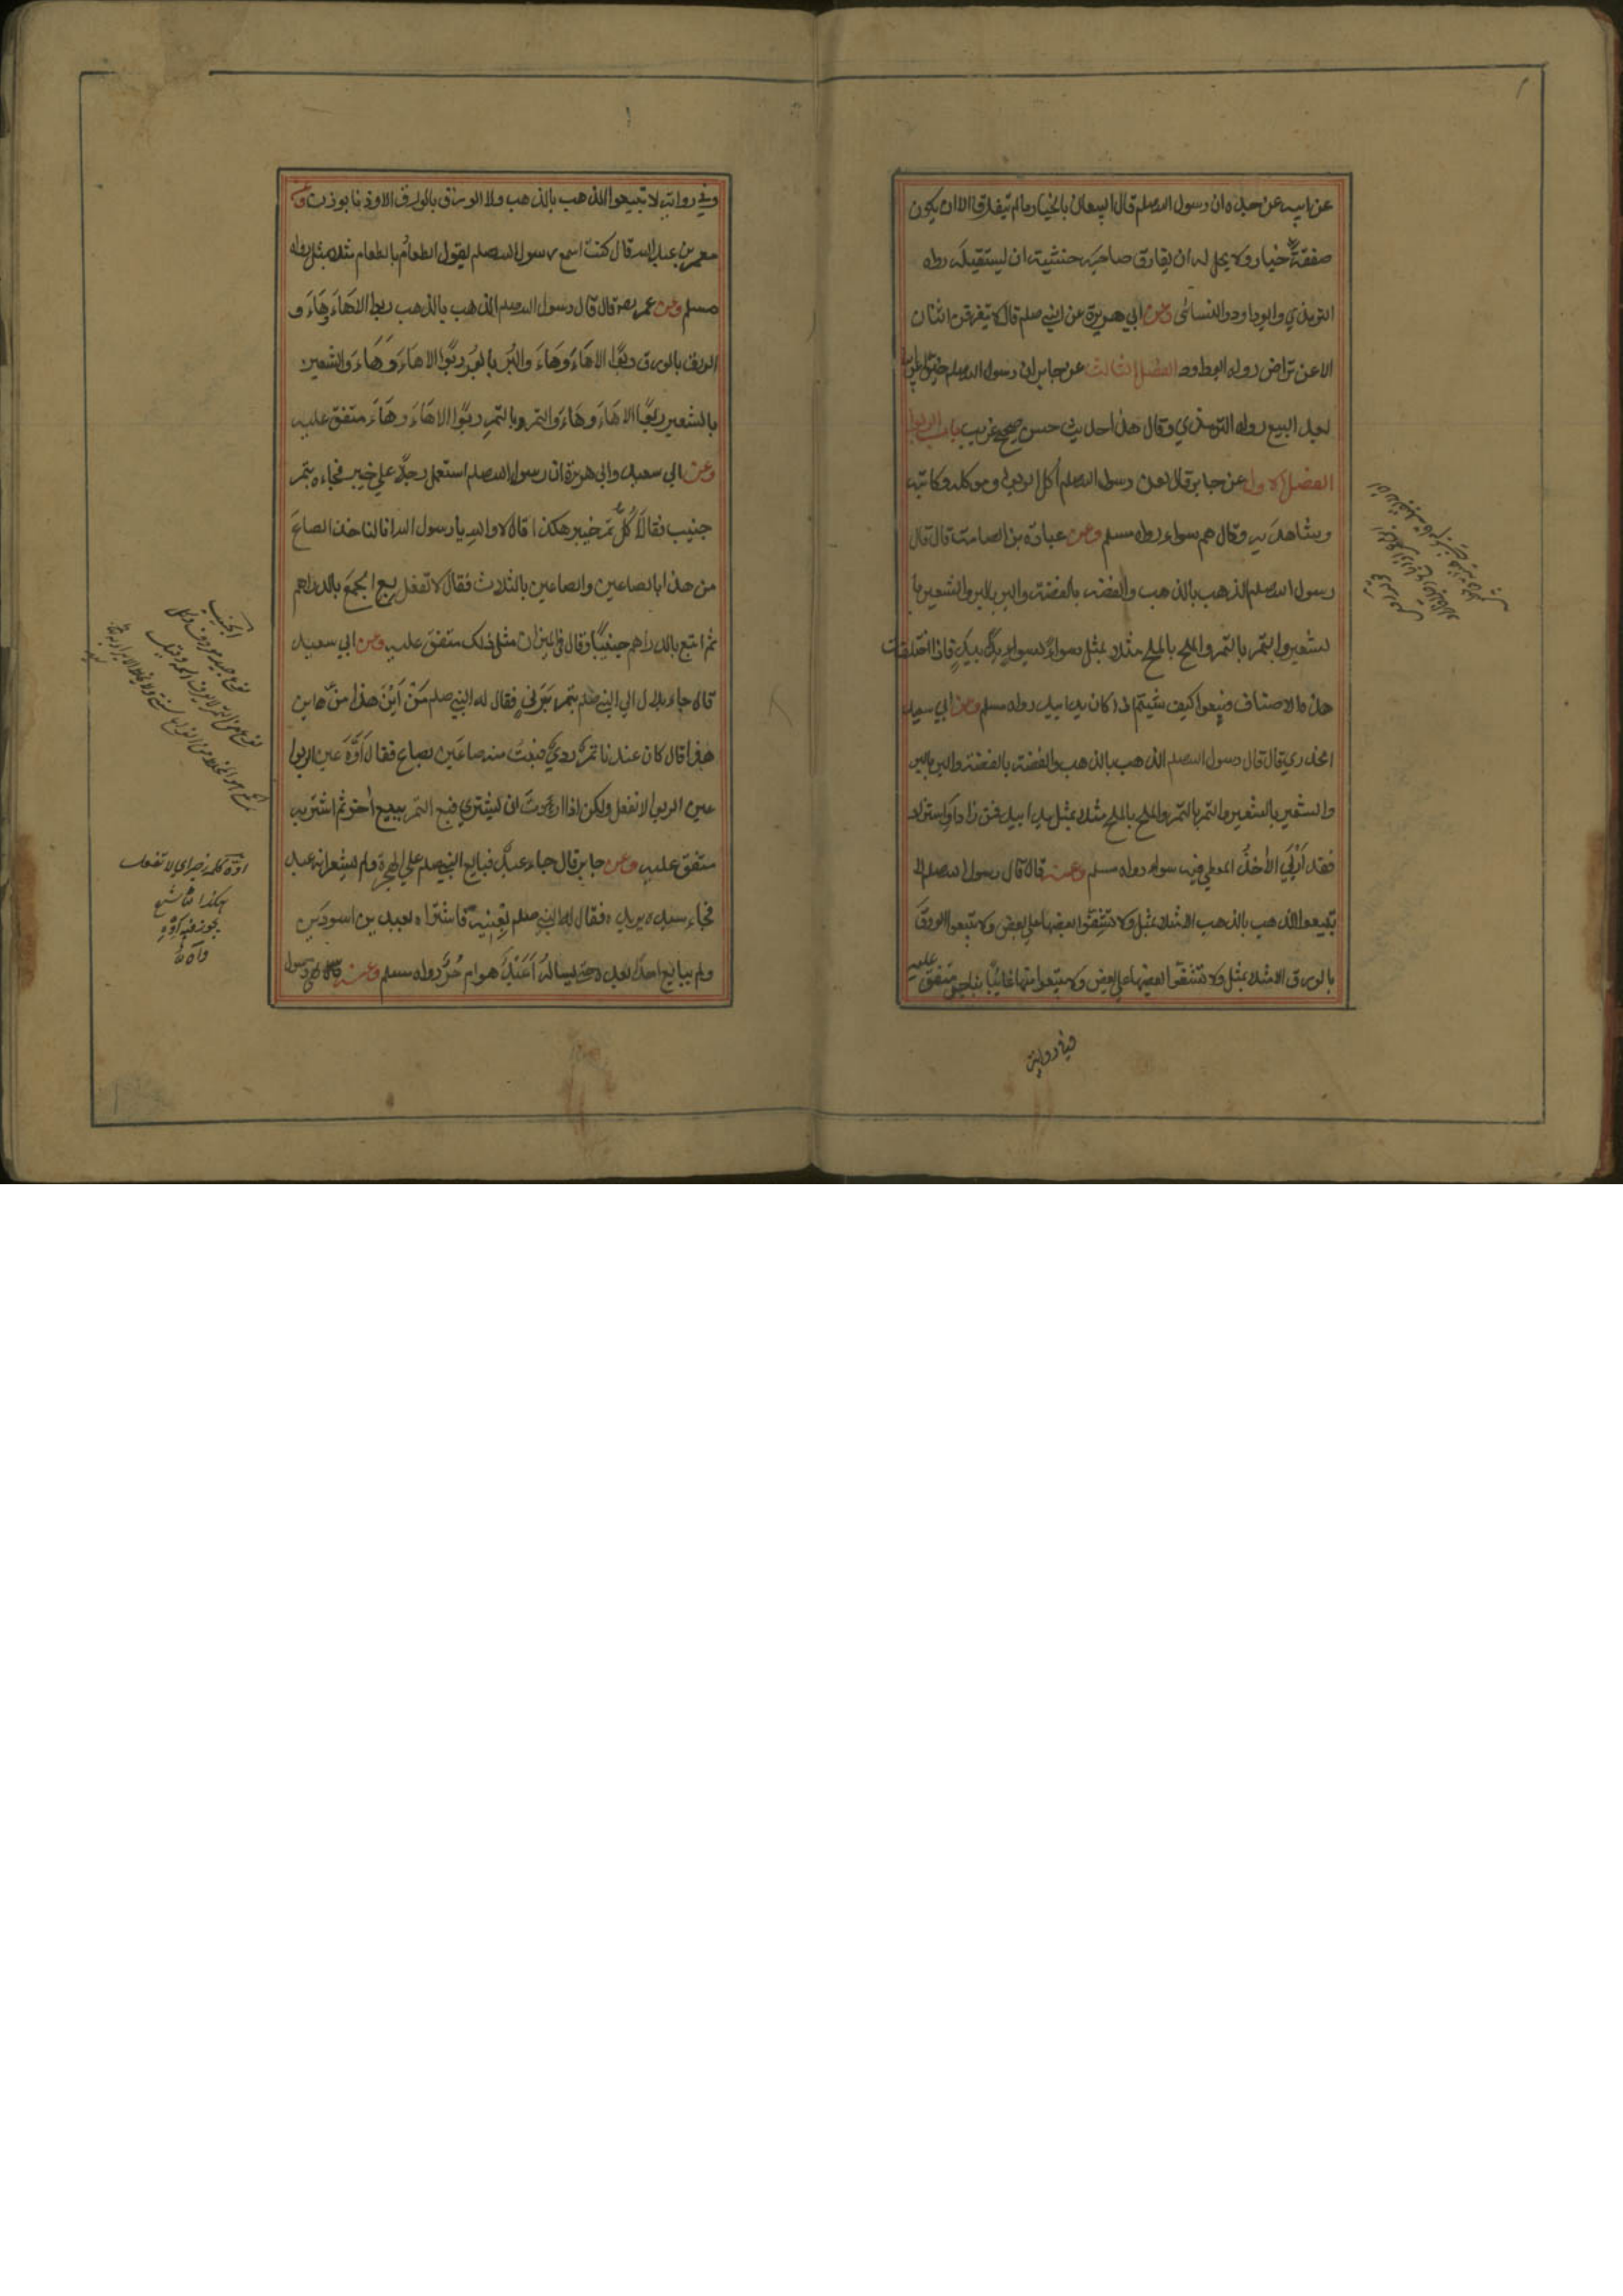 عن ابيه عن جده ان رسول الله صلعم قال البيعان بالخيار ما لم يتفرقا الا ان يكون
صفقة خيار ولا يحل له ان يفارق صاحبه خشية ان يستقيله رواه
الترمذي وابو داود والنسائى وعن ابي هريرة عن النبي صلعم قال لا يتفرقن اثنان
الا عن تراض رواه ابو داود الفصل الثالث عن جابر ان رسول الله صلعم خير
بعد البيع رواه الترمذي وقال هذا حديث حسن صحيح غريب باب الربوا
الفصل الاول عن جابر قال لعن رسول الله صلعم آكل الربوا وموكله وكاتبه
وشاهديه وقال هم سواء رواه مسلم وعن عبادة بن الصامت قال قال
رسول الله صلعم الذهب بالذهب والفضة بالفضة والبر بالبر والشعير با
لشعير والتمر بالتمر والملح بالملح مثلا بمثل سواءً بسواءٍ يدًا بيدٍ فاذا اختلفت
هذه الاصناف فبيعوا كيف شيتم اذا كان يدا بيد رواه مسلم وعن ابي سعيد
الخدري قال قال رسول الله صلعم الذهب بالذهب والفضة بالفضة والبر بالبر
والشعير بالشعير والتمر بالتمر والملح بالملح مثلا بمثل يدا بيد فمن زاد او استزاد
فقد اَرْبَي الآخذُ المعطي فيه سواء رواه مسلم وعنه قال قال رسول الله صلعم لا
تبيعوا الذهب بالذهب الا مثلا بمثل ولا تُشِفُّوا بعضها على بعض ولا تبيعوا الورقَ
بالورق الا مثلا بمثل ولا تشفّوا بعضها على بعض ولا تبيعوا منها غائبًا بناجز متفق عليه
وفي رواية
وفي رواية لا تبيعوا الذهب بالذهب ولا الورق بالورق الا وزنا بوزن وعن
معمر بن عبد الله قال كنت اسمع رسول الله صلعم يقول الطعامُ بالطعام مثلا بمثل رواه
مسلم وعن عمر رضه قال قال رسول الله صلعم الذهب بالذهب ربوا الا هَاءَ وَهَاءَ و
الورق بالورق ربوًا الا هَاءَ وَهَاءَ والبُر بالبُر ربوًا الا هَاءَ وَهَاءَ والشعير
بالشعير ربوًا الا هَاءَ وَهَاءَ والتمر بالتمرِ ربوًا الا هَاءَ وهَاءَ متفق عليه
وعن ابي سعيد وابي هريرة ان رسول الله صلعم استعمل رجلا على خيبر فجاءه بتمر
جنيب فقال اَكُلُّ تمر خيبر هكذا قال لا والله يا رسول الله انا لناخذ الصاعَ
من هذا بالصاعين والصاعين بالثلاث فقال لا تفعل بِعِ الجمعَ بالدراهم
ثم ابتع بالدراهم جنيبًا وقال في الميزان مثل ذلك متفق عليه وعن ابي سعيد
قال جاء بلال الي النبي صلعم بتمر بَرْنيٍ فقال له النبي صلعم مِنْ اَيْنَ هذا
قال كان عندنا تمرٌ رديٌّ فبعتُ منه صاعَين بصاع فقال اَوَّهْ عين الربوا
عين الربوا لا تفعل ولكن اذا اردتَ ان تشتري فبع التمر ببيع آخر ثم اشتر به
متفق عليه وعن جابر قال جاء عبدٌ فبايع النبي صلعم على الهجرة ولم يشعر انه عبد
فجاء سيده يريده فقال له النبي صلعم بِعْنِيه فاشتراه بعبدين اسودين
ولم يبايع احدًا بعده حتى يساله اَعَبْدٌ هو ام حُرٌّ رواه مسلم وعنه قال نهى رسول
اوّه كلمة زجر اى لا تفعل
هكذا
يجوز فيه اَوَّهِ